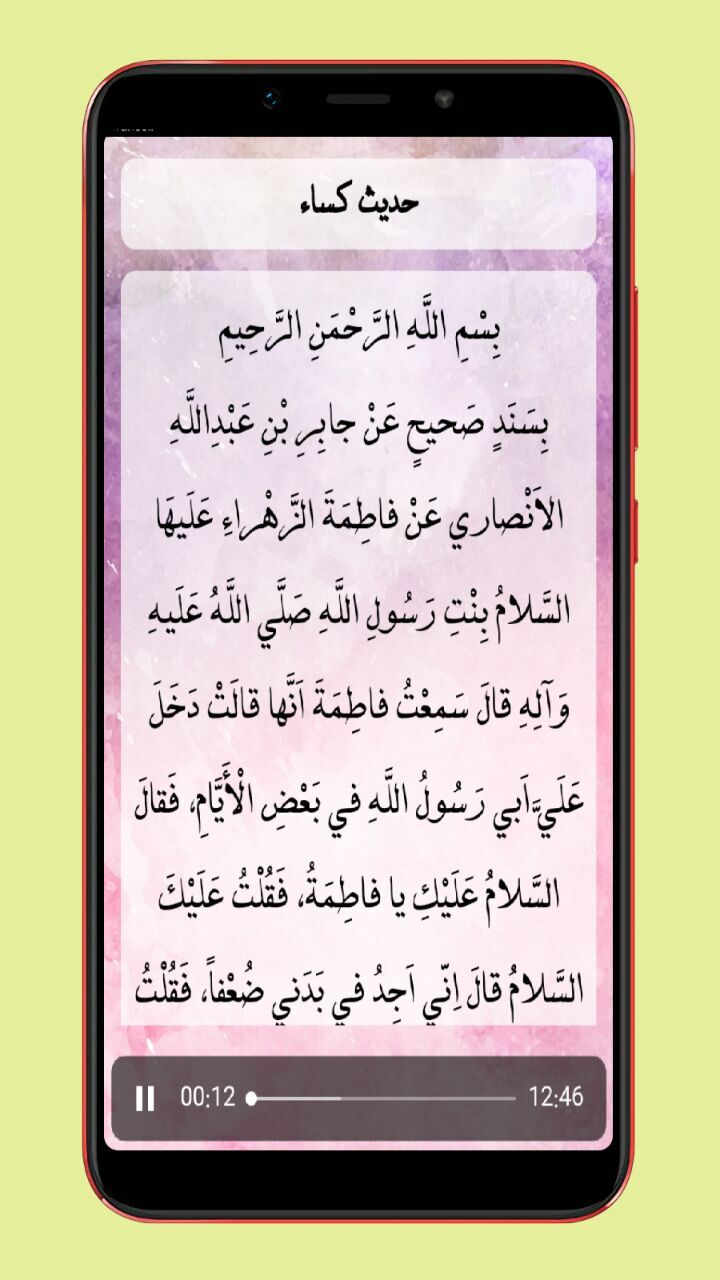 حديث كساء
بِسْمِ اللَّهِ الرَّحْمَنِ الرَّحِيمِ
بِسَنَدٍ صَحيحٍ عَنْ جابِرِ بْنِ عَبْدِاللَّهِ
الاَنْصاري عَنْ فاطِمَةَ الزَّهْراءِ عَلَيهَا
السَّلامُ بِنْتِ رَسُولِ اللَّهِ صَلَّي اللَّهُ عَلَيهِ
وَآلِهِ قالَ سَمِعْتُ فاطِمَةَ اَنَّها قالَتْ دَخَلَ
عَلَيَّ اَبي رَسُولُ اللَّهِ في بَعْضِ الْأَيَّامِ، فَقالَ
السَّلامُ عَلَيْكِ يا فاطِمَةُ، فَقُلْتُ عَلَيْكَ
السَّلامُ قالَ اِنّي اَجِدُ في بَدَني ضُعْفاً، فَقُلْتُ
00:12 12:46